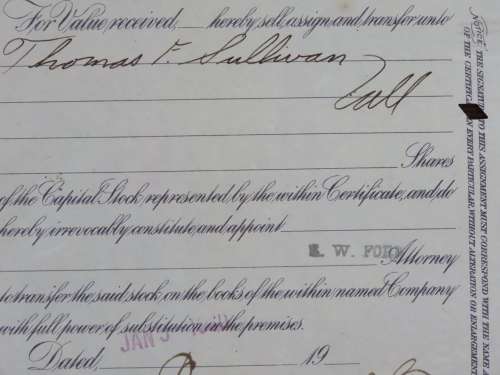 For Value received, hereby sell, assign and transfer unto
Thomas F. Sullivan
Shares
of the Capital Stock represented by the within Certificate, and do
hereby irrevocably constitute and appoint
W. FORD
Attorney
to transfer the said stock on the books of the within named Company
with full power of substitution in the premises.
JAN 5
Dated, 19
NOTICE: THE SIGNATURE TO THIS ASSIGNMENT MUST CORRESPOND WITH THE NAME
OF THE CERTIFICATE IN EVERY PARTICULAR, WITHOUT ALTERATION OR ENLARGEMENT